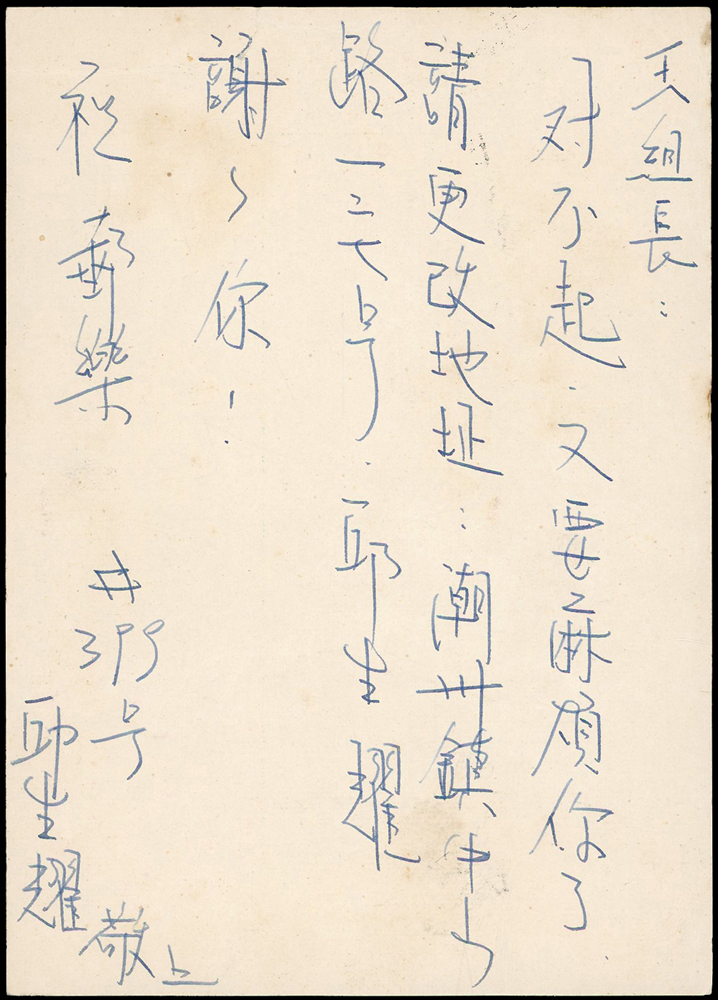 組長：
对不起．又要麻煩你了
請更改地址：潮州鎮中山
路一二七号．邱生耀
謝々你！
祝 郵樂
#399号
邱生耀 敬上